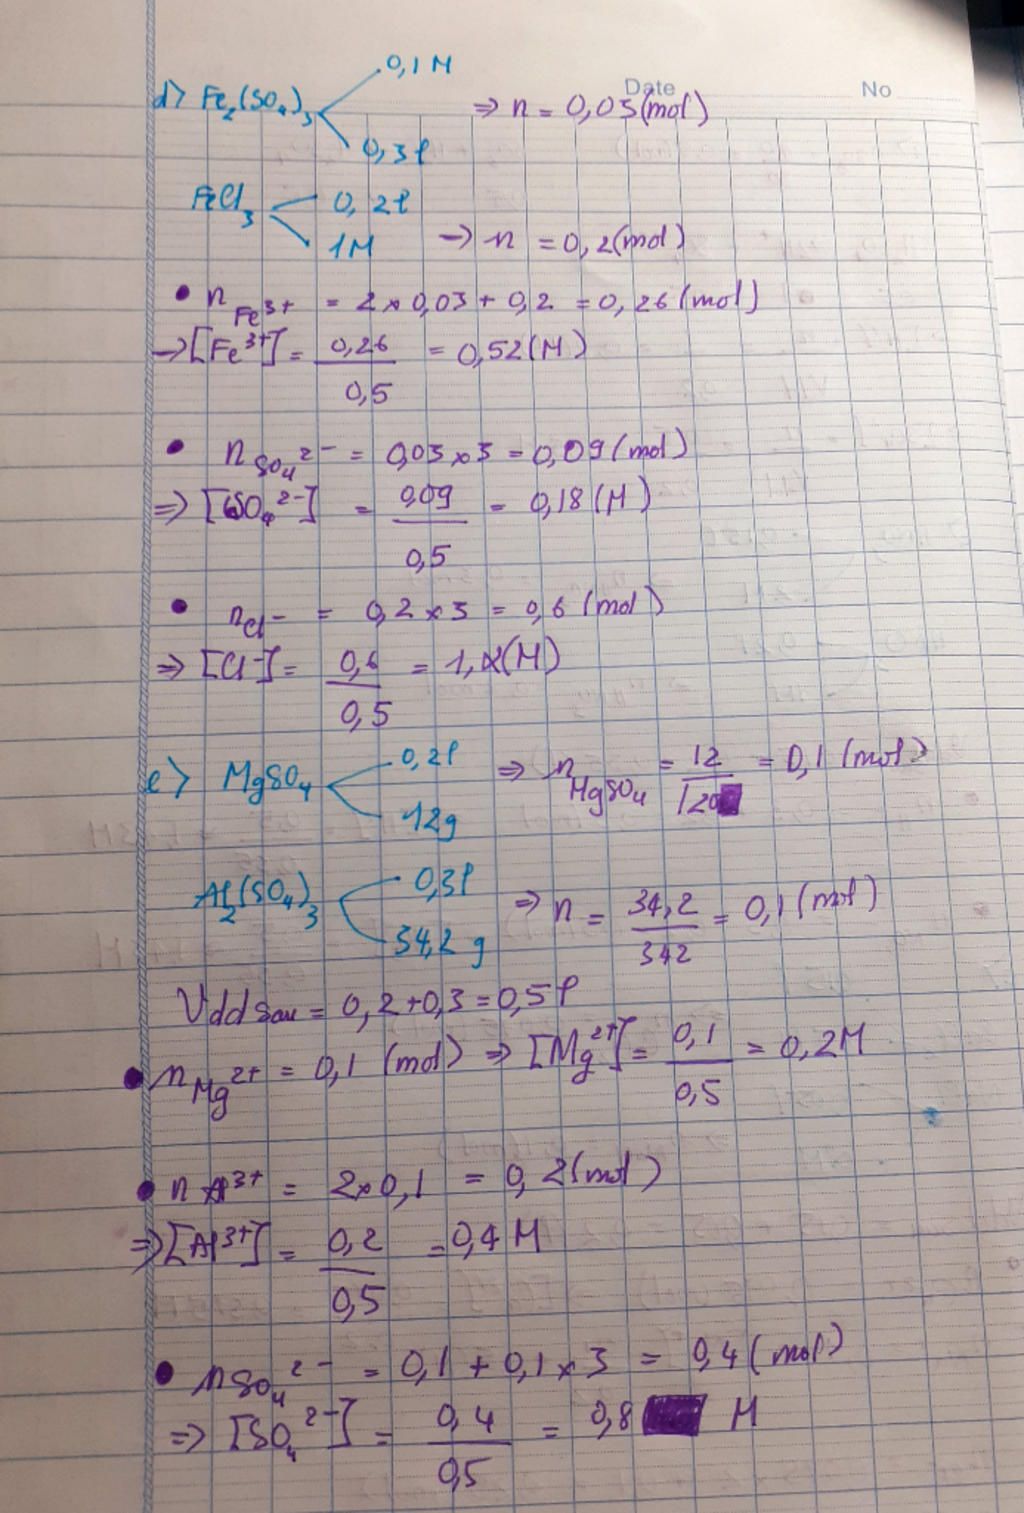 Date No
0,1M
d> Fe₂(SO₄)₃ => n = 0,03(mol)
0,3l
FeCl₃ 0,2l
1M -> n = 0,2(mol)
• n Fe³⁺ = 2 x 0,03 + 0,2 = 0,26 (mol)
-> [Fe³⁺] = 0,26 / 0,5 = 0,52(M)
• n SO₄²⁻ = 0,03 x 3 = 0,09 (mol)
=> [SO₄²⁻] = 0,09 / 0,5 = 0,18 (M)
• n Cl⁻ = 0,2 x 3 = 0,6 (mol)
=> [Cl⁻] = 0,6 / 0,5 = 1,2(M)
e> MgSO₄ 0,2l => n MgSO₄ = 12 / 120 = 0,1 (mol)
12g
Al₂(SO₄)₃ 0,3l => n = 34,2 / 342 = 0,1 (mol)
34,2g
Vdd sau = 0,2 + 0,3 = 0,5l
• n Mg²⁺ = 0,1 (mol) => [Mg²⁺] = 0,1 / 0,5 = 0,2M
• n Al³⁺ = 2 x 0,1 = 0,2 (mol)
=> [Al³⁺] = 0,2 / 0,5 = 0,4 M
• n SO₄²⁻ = 0,1 + 0,1 x 3 = 0,4 (mol)
=> [SO₄²⁻] = 0,4 / 0,5 = 0,8 M